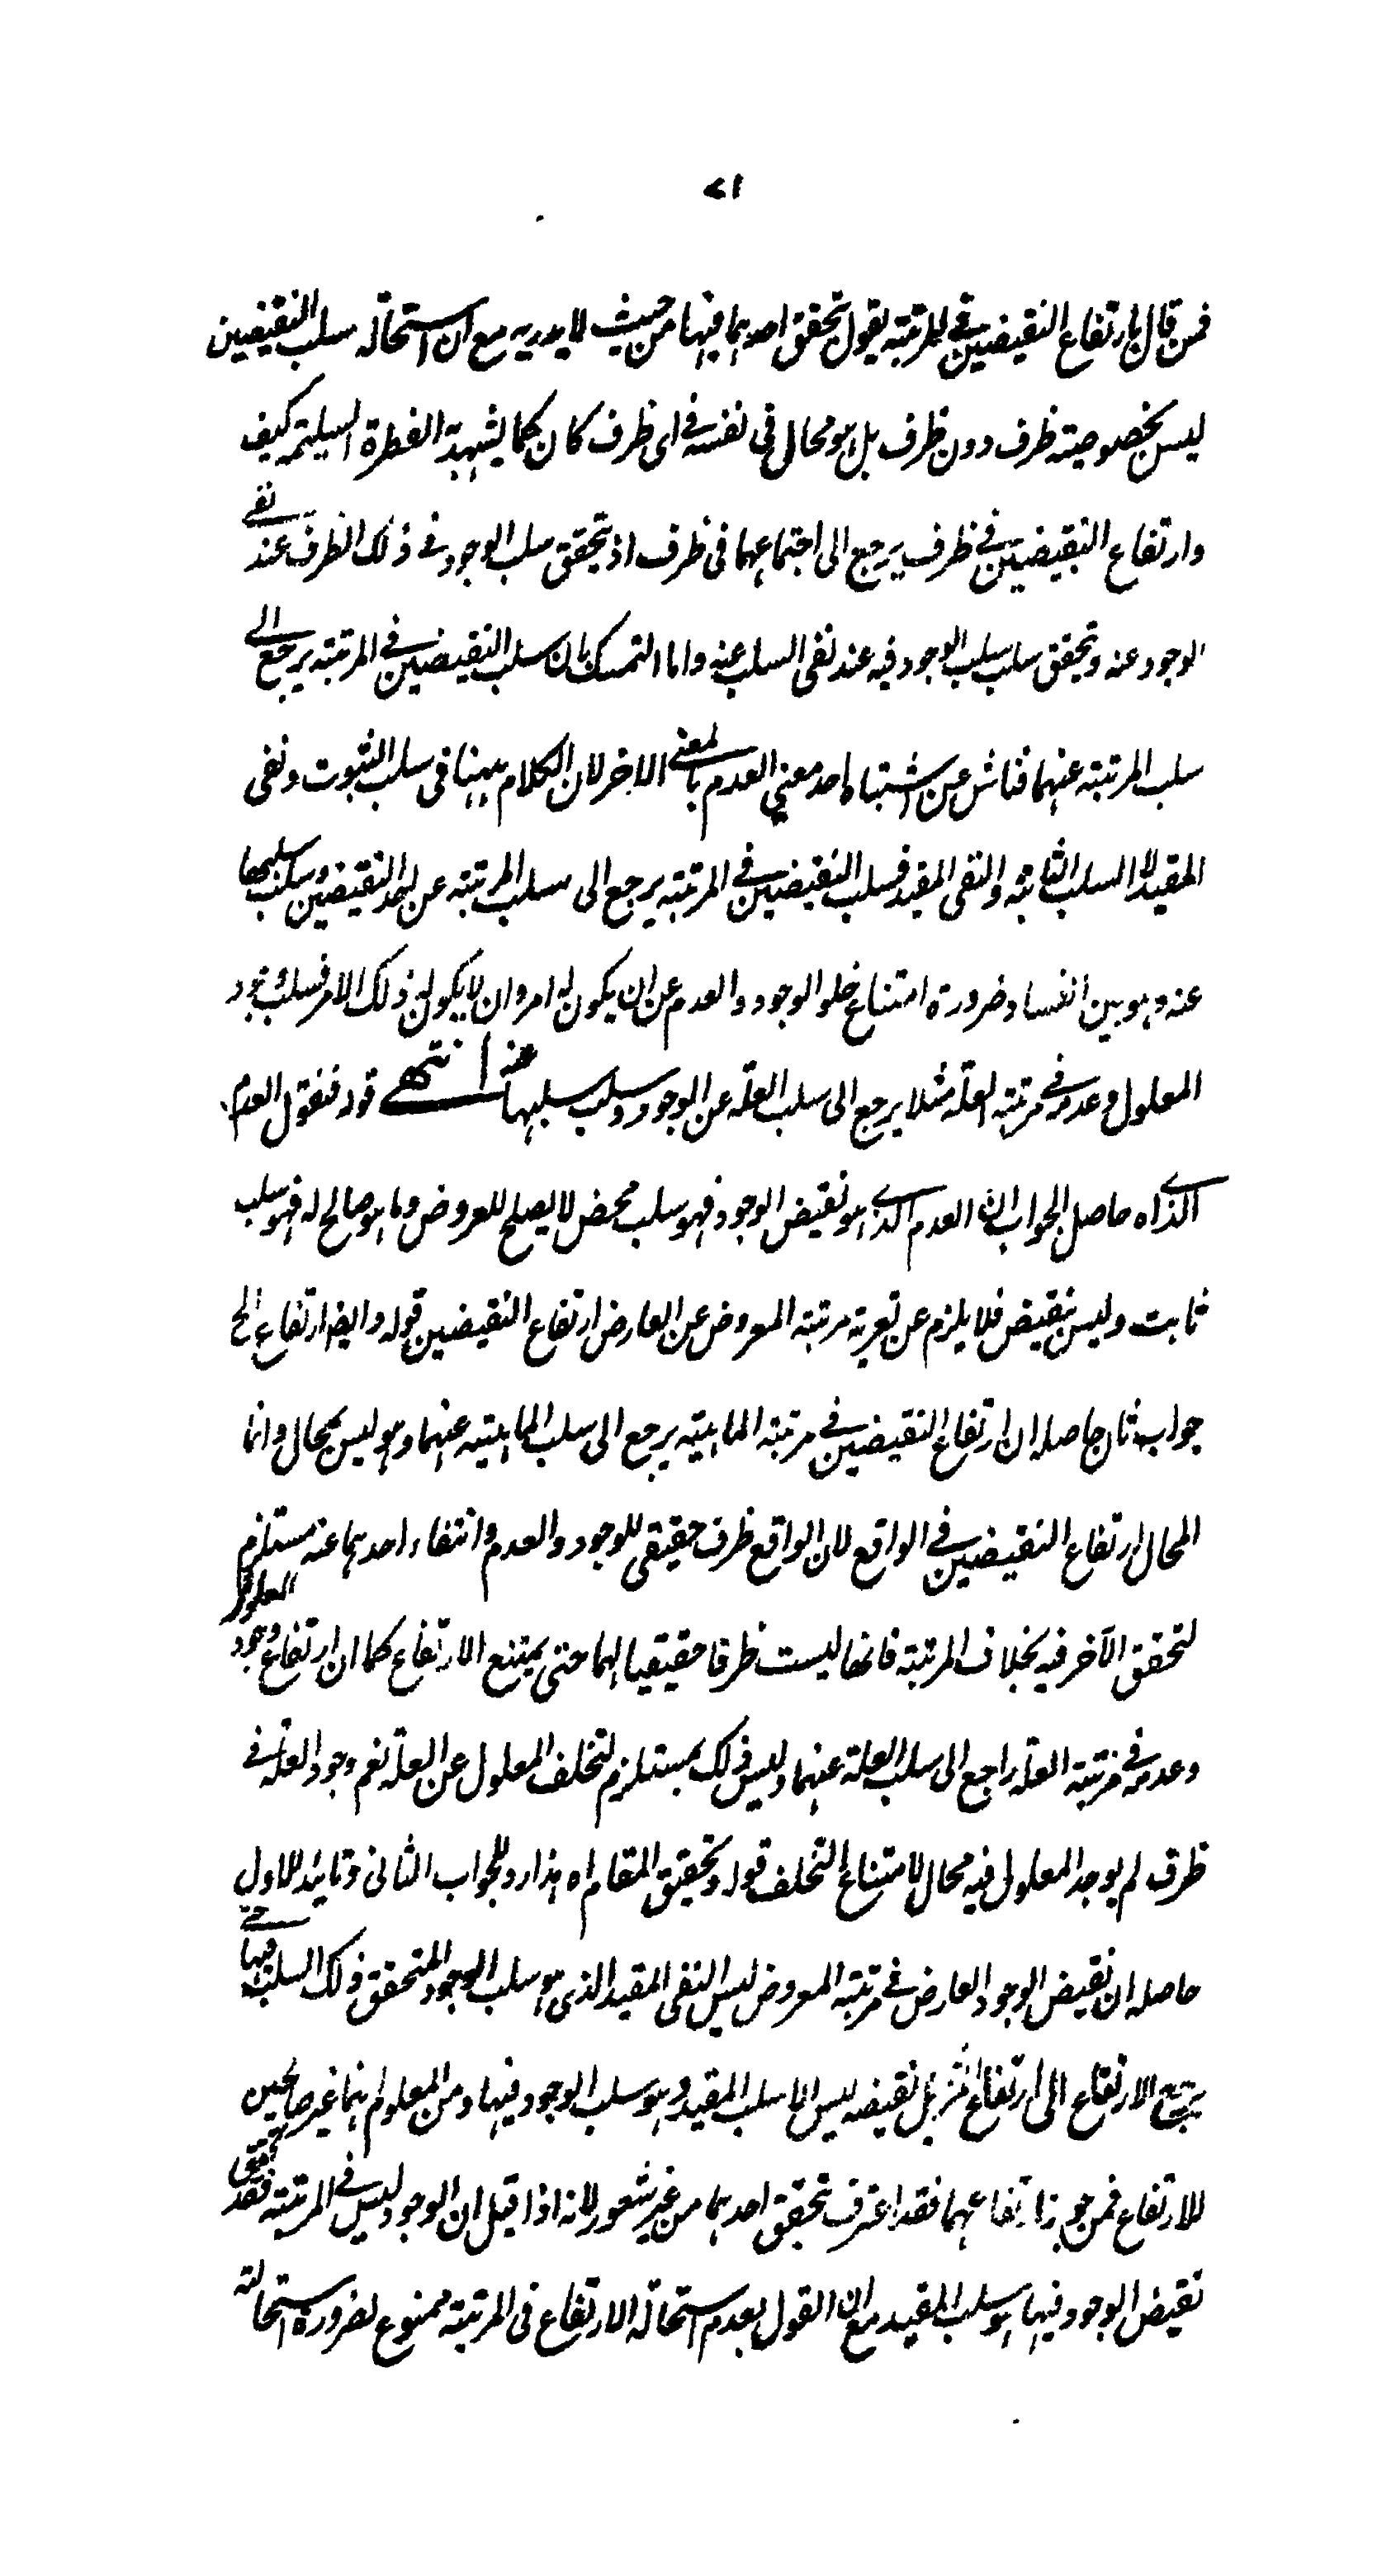 ٧١
فمن قال بارتفاع النقيضين في المرتبة يقول بتحقق احدهما فيها من حيث لا يدريه مع ان استحالة سلب النقيضين
ليس بخصوصية ظرف دون ظرف بل هو محال في نفسه في اى ظرف كان كما يشهد به الفطرة السليمة كيف
وارتفاع النقيضين في ظرف يرجع الى اجتماعهما فى ظرف اذ يتحقق سلب الوجود في ذلك الظرف عند نفى
الوجود عنه وتحقق سلب سلب الوجود فيه عند نفى السلب عنه واما التمسك بان سلب النقيضين في المرتبة يرجع الى
سلب المرتبة عنهما فناش عن اشتباه احد معني العدم بالمعنى الاخر لان الكلام ههنا فى سلب الثبوت ونفى
المقيد لا السلب الثابت والنفى المقيد فسلب النقيضين في المرتبة يرجع الى سلب المرتبة عن احد النقيضين وسلب سلبها
عنه وهو بين الفساد ضرورة امتناع خلو الوجود والعدم عن ان يكون له امر وان لا يكون له ذلك الامر فسلب وجود
المعلول وعدمه في مرتبة العلة مثلا يرجع الى سلب العلة عن الوجود وسلب سلبها عنه انتهى قوله فنقول العدم
الذى اه حاصل الجواب ان العدم الذى هو نقيض الوجود فهو سلب محض لا يصلح للعروض وما هو صالح له فهو سلب
ثابت وليس بنقيض فلا يلزم عن تعرية مرتبة المعروض عن العارض ارتفاع النقيضين قوله وايضا ارتفاع الخ
جواب ثان حاصله ان ارتفاع النقيضين في مرتبة الماهية يرجع الى سلب الماهية عنهما وهو ليس بمحال وانما
المحال ارتفاع النقيضين في الواقع لان الواقع ظرف حقيقى للوجود والعدم وانتفاء احدهما عنه مستلزم
لتحقق الآخر فيه بخلاف المرتبة فانها ليست ظرفا حقيقيا لهما حتى يمتنع الارتفاع كما ان ارتفاع وجود المعلول
وعدمه في مرتبة العلة راجع الى سلب العلة عنهما وليس ذلك بمستلزم لتخلف المعلول عن العلة نعم وجود العلة في
ظرف لم يوجد المعلول فيه محال لامتناع التخلف قوله وتحقيق المقام اه هذا رد للجواب الثانى وتائيد للاول
حاصله ان نقيض الوجود العارض في مرتبة المعروض ليس النفى المقيد الذى هو سلب الوجود المتحقق ذلك السلب فيها حتى
يرجع الارتفاع الى ارتفاع بل نقيضه ليس الا سلب المقيد وهو سلب الوجود فيها ومن المعلوم انهما غير صالحين
للارتفاع فمن جوز ارتفاعهما فقد اعترف بتحقق احدهما من غير شعور لانه اذا قيل ان الوجود ليس في المرتبة فقد تحقق
نقيض الوجود فيها هو سلب المقيد مع ان القول بعدم استحالة الارتفاع فى المرتبة ممنوع لضرورة استحالته